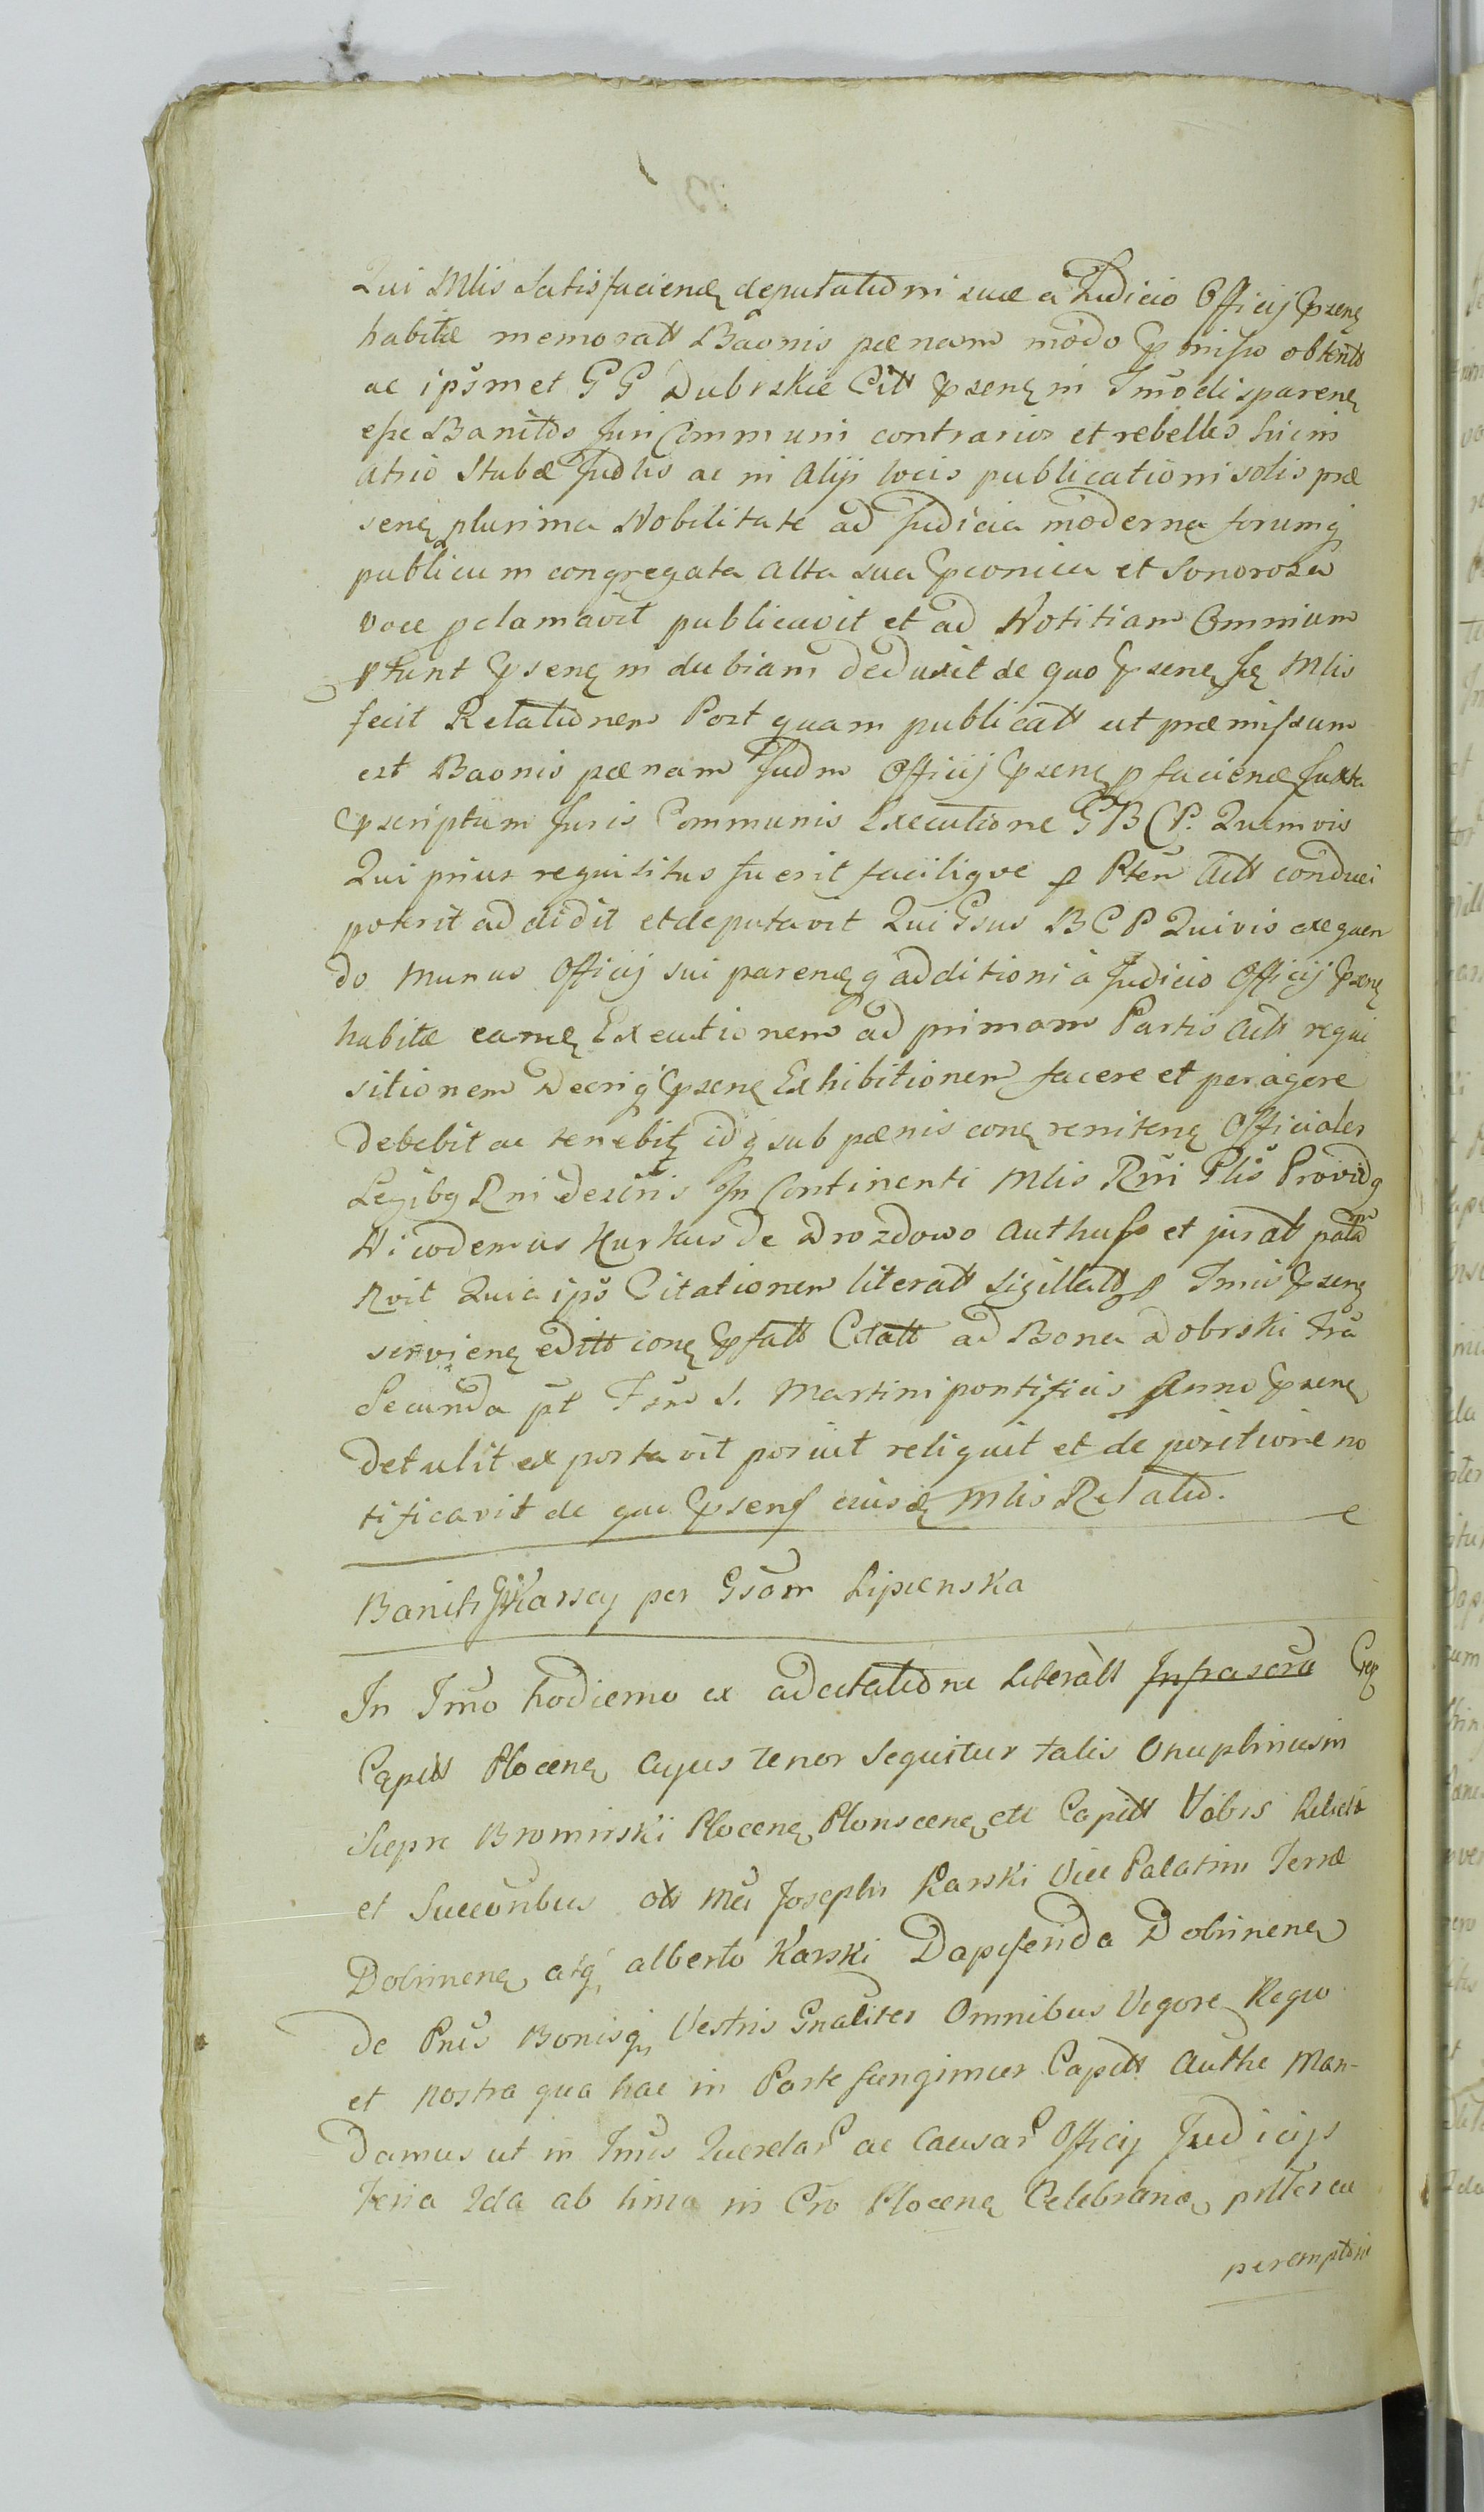 Qui Mlis Satisfaciendę deputationi suæ a Iudicio Officij pseñ
habitæ memoratt Baonis pænam modo præmisso obtentt
ac ipsmet GG Dubrskie Citt pseñ in Tmo disparenę
esse Banitos Iuri Communi contrarios et rebelles hic in
atrio Stubæ Iudlis ac in alijs locis publicationi solis præ
senę plurima Nobilitate ad Iudicia moderna forumq
publicum congregata alta sua præconica et Sonorosa
voce pclamavit publicavit et ad Notitiam Omnium
ptunt pseñ indubiam deduxit de quo pseñ suę Mlis
fecit Relationem Post quam publicatt ut præmissum
est Baonis pænam Iudm Officij pseñ p faciendę Iuxta
præscriptum Iuris Communis Executione GBCP. Quemvis
Qui prius requisitus fuerit facilique p Ptem Actt conduci
poterit addidit et deputavit Qui Gsus BCP Quivis exequen
do munus Officij sui parendęq additioni a Iudicio Officij pseñ
habitæ eamdę Executionem ad primam Partis Actt requi
sitionem Decriq pseñ Exhibitionem facere et peragere
debebit ac tenebitę idq sub pænis conę renitenę Officiales
Legibq Rni descriptis In Continenti Mlis Rni Plis Providq
Nicodemus Kurkus de Drozdowo Authuss et juratt palam
Rvit Quia ips Citationem literatt Sigillatt p Tmis pseñ
servienę editt conę præfatt Citatt ad Bona Dobrski fra
Secunda pt Fsm S. Martini pontificis Anno pseñ
detulit exportavit posuit reliquit et de positione no
tificavit de quo pseñs eiusdę Mlis Relatio.
Banit Karscy per Gsom Lipienska
In Tmo hodierno ex adcitatione Literatt Infrascra Grę
Capitt Plocenę Cujus tenor Sequitur talis Onuphrius in
Siepre Bromirski Plocenę Plonscenę ett Capitt Vobis Relictæ
et Succoribus ols Mci Josephi Karski Vice Palatini Terræ
Dobrinenę atq alberto Karski Dapiferida Dobrinenę
de Pnis Bonisq Vestris Gnaliter Omnibus Vigore Regio
et nostra qua hac in Parte fungimur Capitt Authe Man-
damus ut in Tmis Querelar ac Causar Officij Iudicijs
Feria 2da ab hinc in Cro Plocenę Celebrandę pttereu
peremptorie